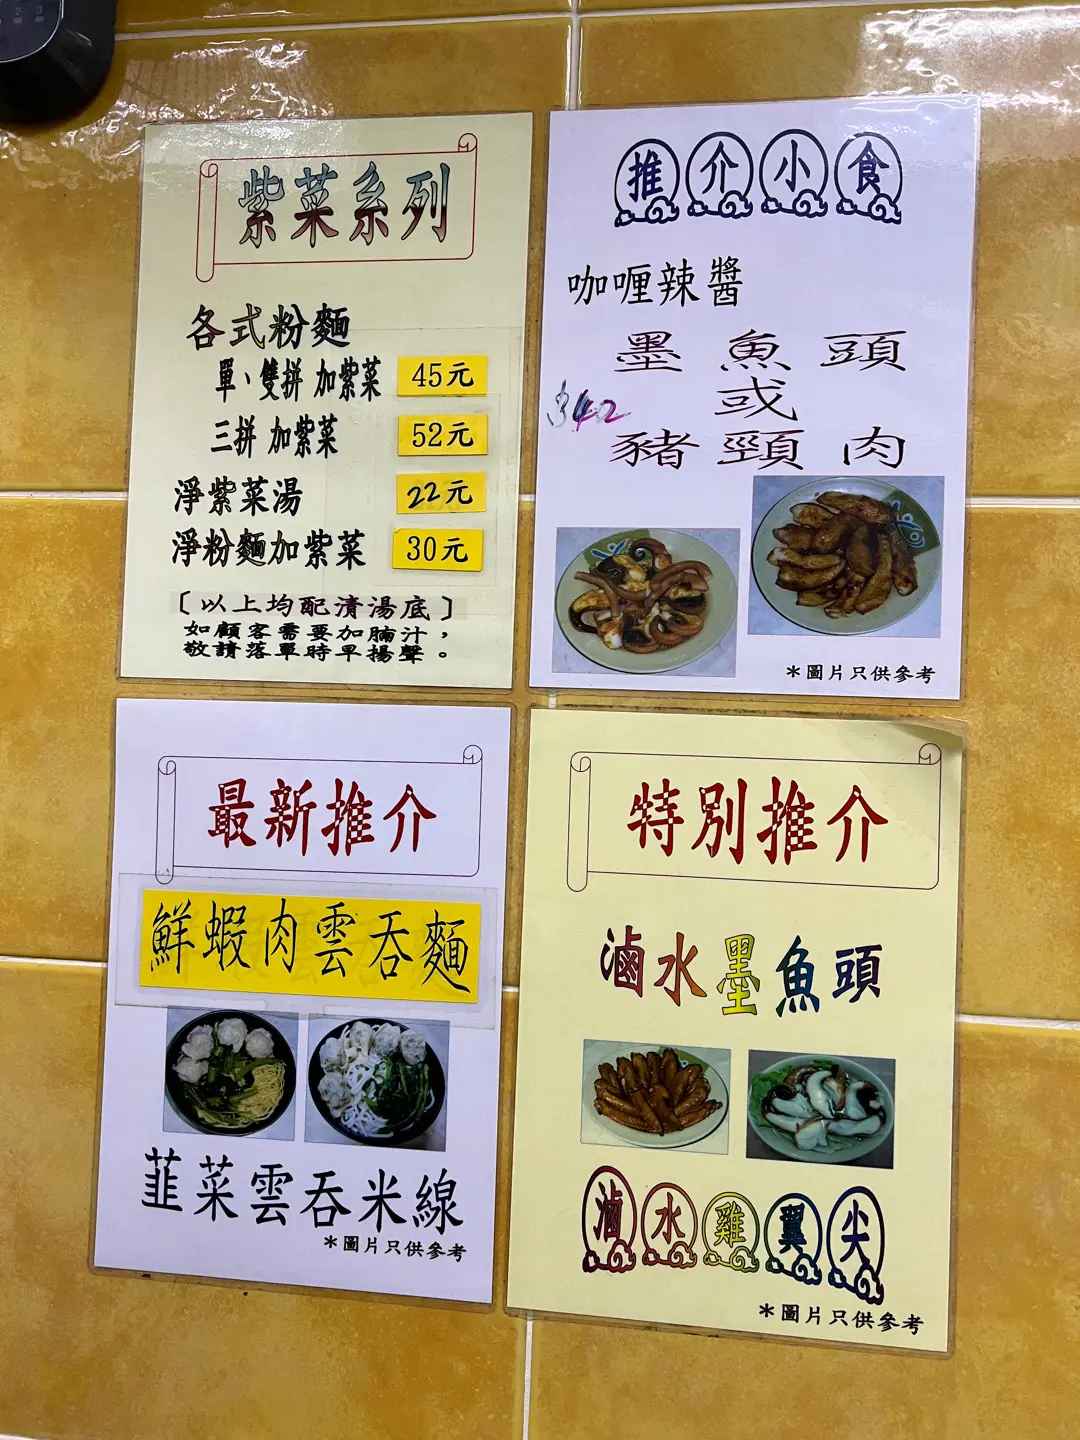 紫菜系列
各式粉麵
單、雙拼 加紫菜 45元
三拼 加紫菜 52元
淨紫菜湯 22元
淨粉麵加紫菜 30元
〔以上均配清湯底〕
如顧客需要加腩汁，
敬請落單時早揚聲。
推介小食
咖喱辣醬
墨魚頭
或
$42
豬頸肉
＊圖片只供參考
最新推介
鮮蝦肉雲吞麵
韮菜雲吞米線
＊圖片只供參考
特別推介
滷水墨魚頭
滷水雞翼尖
＊圖片只供參考